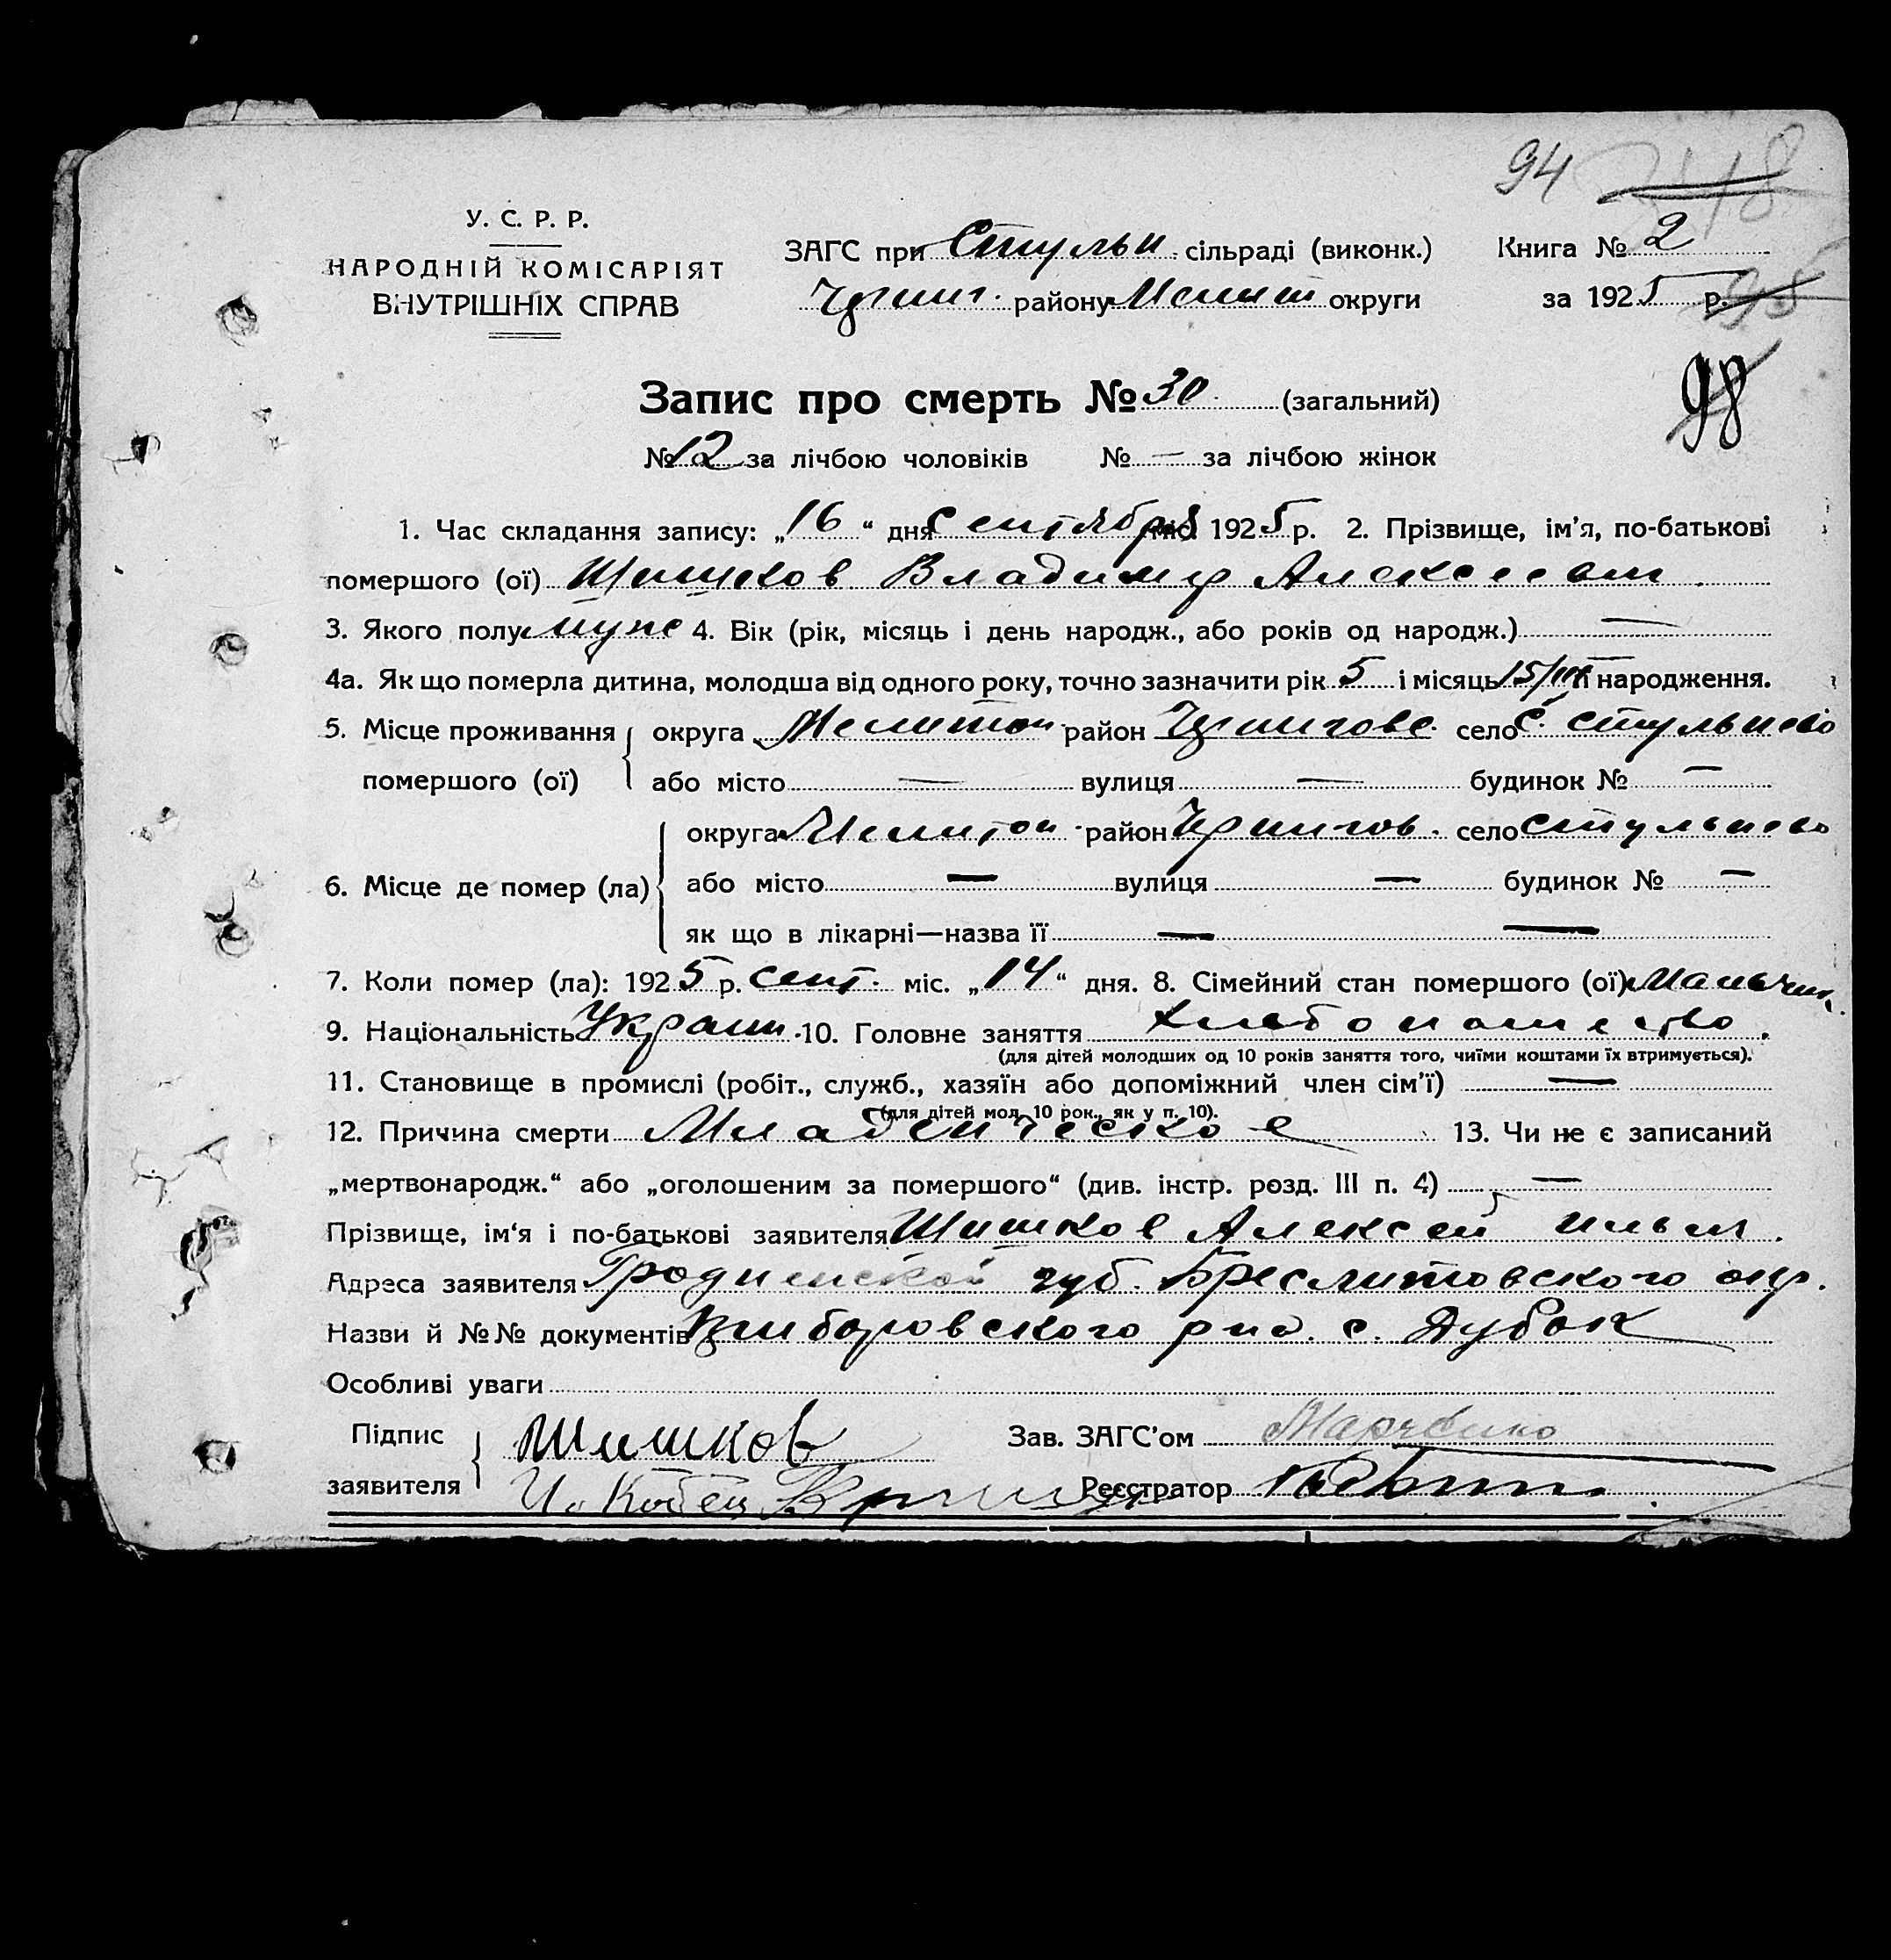 94
У. С. Р. Р.
НАРОДНІЙ КОМІСАРІЯТ
ВНУТРІШНІХ СПРАВ
ЗАГС при Стульн. сільраді (виконк.) Книга № 2
району Мелит округи за 1925 р.
98
Запис про смерть № 30. (загальний)
№ 12 за лічбою чоловіків № — за лічбою жінок
1. Час складання запису: „16“ дня Сентября міс. 1925 р. 2. Прізвище, ім’я, по-батькові
помершого (ої) Шишков Владимир Алексеевич.
3. Якого полу муж 4. Вік (рік, місяць і день народж., або років од народж.) —
4а. Як що померла дитина, молодша від одного року, точно зазначити рік 5 і місяць 15/ її народження.
5. Місце проживання помершого (ої) округа Мелитоп. район Чернигове. село С. Стульнево
або місто — вулиця — будинок № —
6. Місце де помер (ла) округа Мелитоп. район Чернигов. село Стульнево
або місто — вулиця — будинок № —
як що в лікарні—назва її — —
7. Коли помер (ла): 1925 р. сент. міс. „14“ дня. 8. Сімейний стан помершого (ої) Мальчик.
9. Національність Украин. 10. Головне заняття Хлебопашество.
(для дітей молодших од 10 років заняття того, чиїми коштами їх втримується).
11. Становище в промислі (робіт., служб., хазяїн або допоміжний член сім’ї) —
(для дітей мол. 10 рок., як у п. 10).
12. Причина смерти Младенческое 13. Чи не є записаний
„мертвонародж.“ або „оголошеним за помершого“ (див. інстр. розд. III п. 4) —
Прізвище, ім‘я і по-батькові заявителя Шишков Алексей Ильич.
Адреса заявителя Гродненской губ. Бреслитовского окр.
Назви й №№ документів рио. с. Дубок
Особливі уваги
Підпис заявителя Шишков Зав. ЗАГС’ом Марченко
Реєстратор